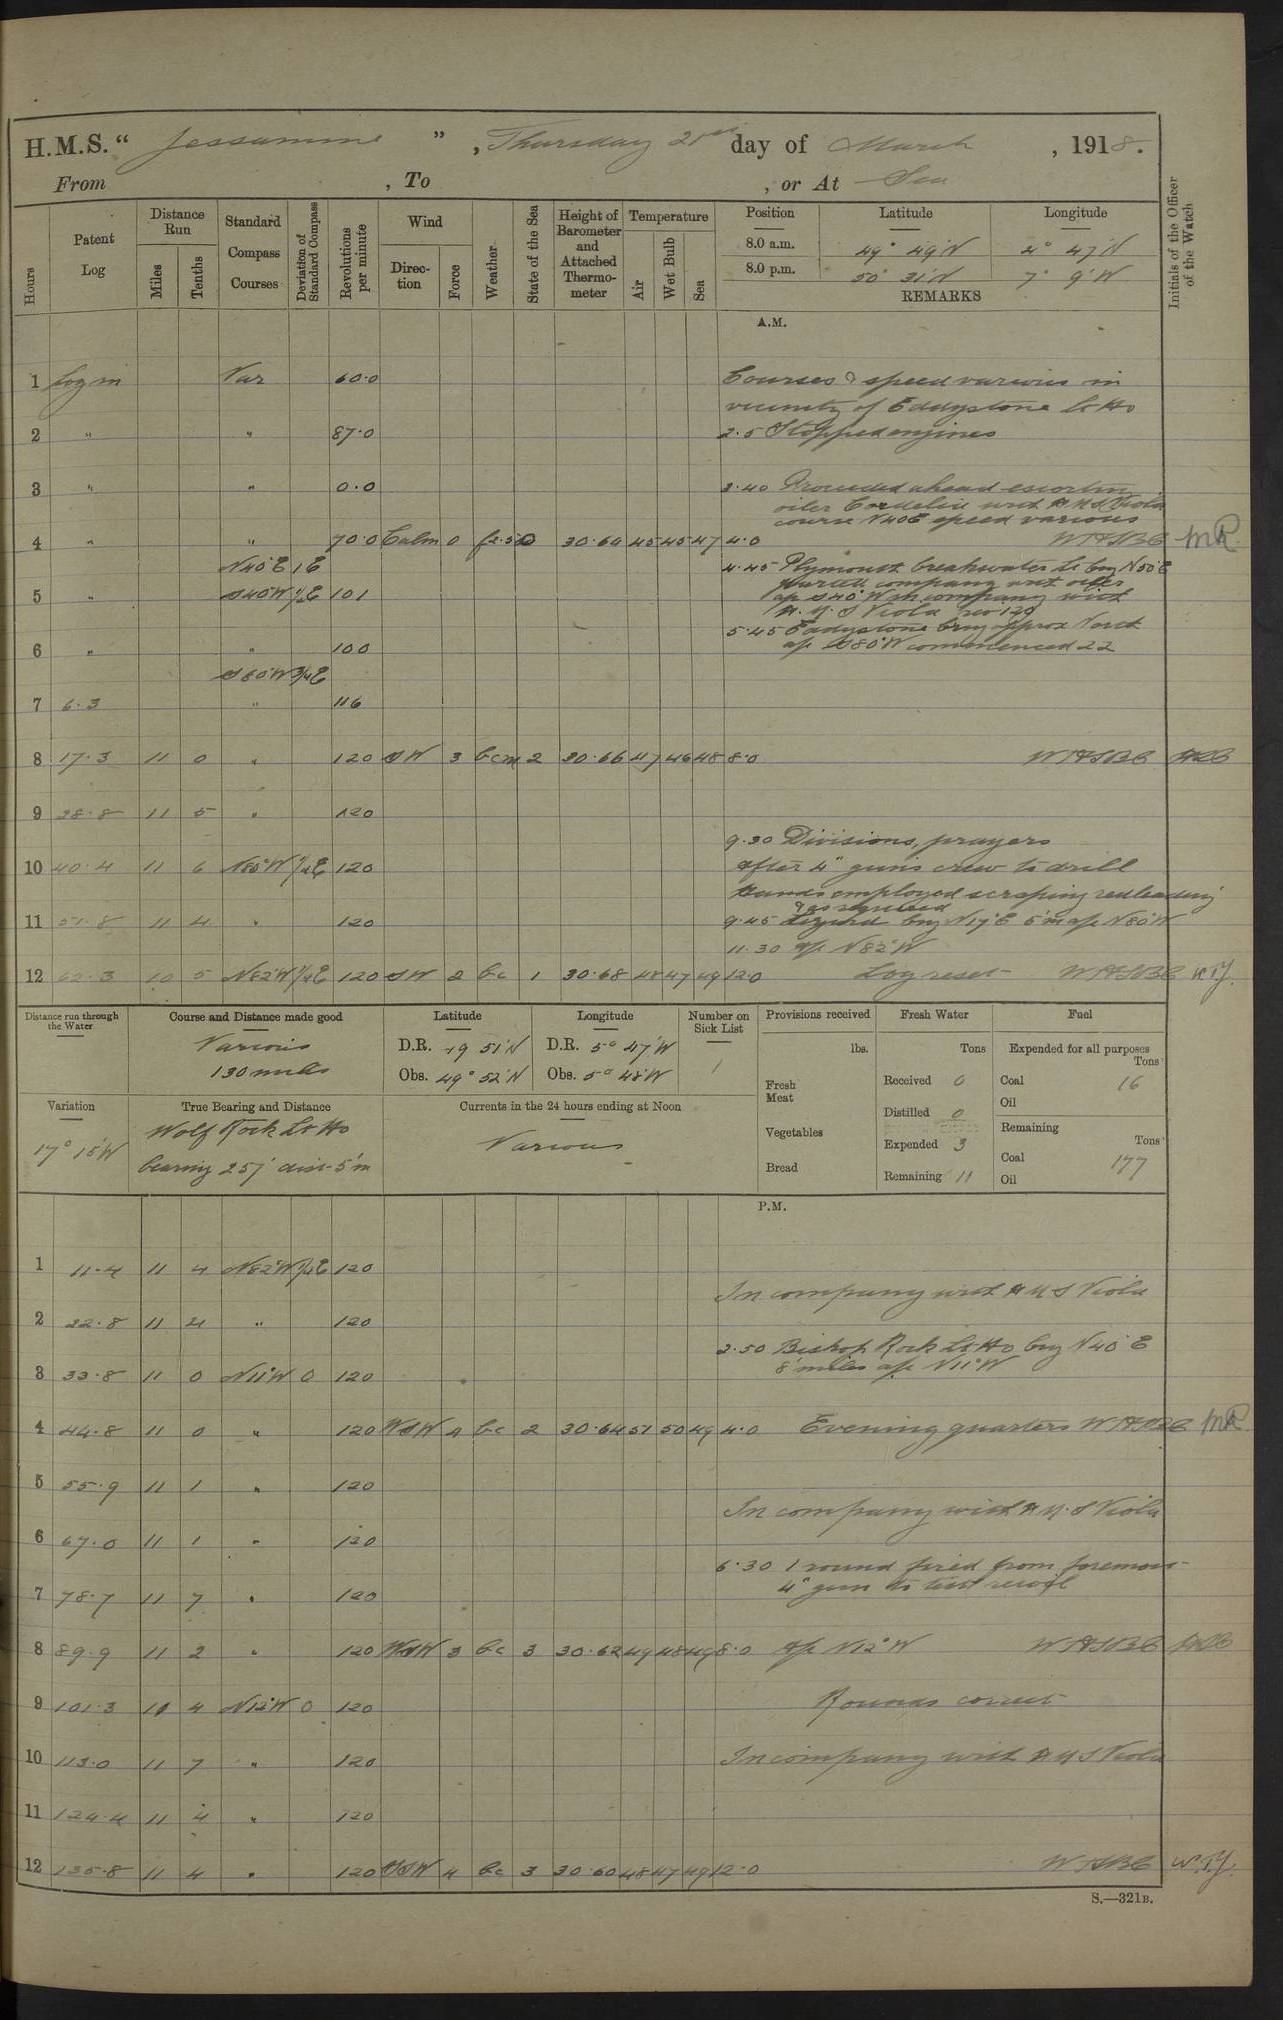 H.M.S. “ Jessamine ” , Thursday 21st day of March , 1918.
From , To , or At Sea
Hours
Patent Log
Distance Run
Miles
Tenths
Standard Compass Courses
Deviation of Standard Compass
Revolutions per minute
Wind
Direction
Force
Weather
State of the Sea
Height of Barometer and Attached Thermometer
Temperature
Air
Wet Bulb
Sea
Position Latitude Longitude
8.0 a.m. 49° 49'N 4° 47'N
8.0 p.m. 50° 31'N 7° 9'W
REMARKS
Initials of the Officer of the Watch
A.M.
1 Log in Var 60.0 Courses & speed various in
vicinity of Eddystone Lt Ho
2 " " 87.0 2.5 Stopped engines
3 " " 0.0 3.40 Proceeded ahead escorting
oiler Cordelia with HMS Viola
course N40E speed various
4 " " 70.0 Calm 0 30.64 45 45 47 4.0 WHSBC MR
N40°E 1E 4.45 Plymouth breakwater Lt brg N50°E
company with oiler
5 " S40°W ½E 101 a/c S40°W in company with
H.M.S Viola rev 120
5.45 Eddystone brg approx North
6 " " 100 a/c S80°W commenced 22
S80°W ¾E
7 6.3 " 116
8 17.3 11 0 " 120 SW 3 bcm 2 30.66 47 46 48 8.0 WHSBC
9 28.8 11 5 " 120
9.30 Divisions, prayers
10 40.4 11 6 N80°W ¼E 120 After 4" guns crew to drill
Hands employed scraping redleading
& as required
11 51.8 11 4 " 120 9.45 Lizard brg N17°E 5'm a/c N80°W
11.30 a/c N82°W
12 62.3 10 5 N82°W ¼E 120 SW 2 bc 1 30.68 48 47 49 12.0 Log reset WHSBC W.T.Y.
Distance run through the Water
Course and Distance made good
Various
130 miles
Latitude
D.R. 49 51'N
Obs. 49° 52'N
Longitude
D.R. 5° 47'W
Obs. 5° 48'W
Number on Sick List
1
Provisions received
lbs.
Fresh Meat
Vegetables
Bread
Fresh Water
Tons
Received 0
Distilled 0
Expended 3
Remaining 11
Fuel
Expended for all purposes
Tons
Coal 16
Oil
Remaining
Tons
Coal 177
Oil
Variation
17° 15'W
True Bearing and Distance
Wolf Rock Lt Ho
bearing 257° dist 5'm
Currents in the 24 hours ending at Noon
Various
P.M.
1 11.4 11 4 N82°W ¼E 120
In company with HMS Viola
2 22.8 11 4 " 120
2.50 Bishop Rock Lt Ho brg N40°E
8 miles a/c N11°W
3 33.8 11 0 N11°W 0 120
4 44.8 11 0 " 120 WSW 4 bc 2 30.64 51 50 49 4.0 Evening quarters WHSBC MR
5 55.9 11 1 " 120
In company with H.M.S Viola
6 67.0 11 1 " 120
6.30 1 round fired from foremost
4" gun to test recoil
7 78.7 11 7 " 120
8 89.9 11 2 " 120 WSW 3 bc 3 30.62 49 48 49 8.0 a/c N12°W WHSBC
9 101.3 10 4 N12°W 0 120 Rounds correct
10 113.0 11 7 " 120 In company with HMS Viola
11 124.4 11 4 " 120
12 135.8 11 4 " 120 4 bc 3 30.60 48 47 49 12.0 WHSBC W.T.Y.
S.—321B.